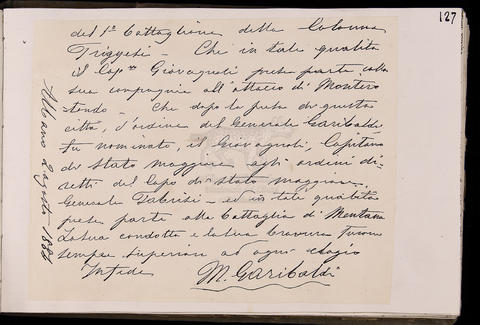 127
del 1º Battaglione della Colonna
Frigyesi - Che in tale qualità
il Cap.no Giovagnoli prese parte colla
sua compagnia all'attacco di Montero
tondo - Che dopo la presa di questa
città, d'ordine del Generale Garibaldi
fu nominato, il Giovagnoli, Capitano
di Stato Maggiore agli ordini di-
retti del Capo di Stato Maggiore,
Generale Fabrizi - ed in tale qualità
prese parte alla Battaglia di Mentana
La sua condotta e la sua bravura furono
sempre superiori ad ogni elogio
In fede
M. Garibaldi
Albano 2 agosto 1888